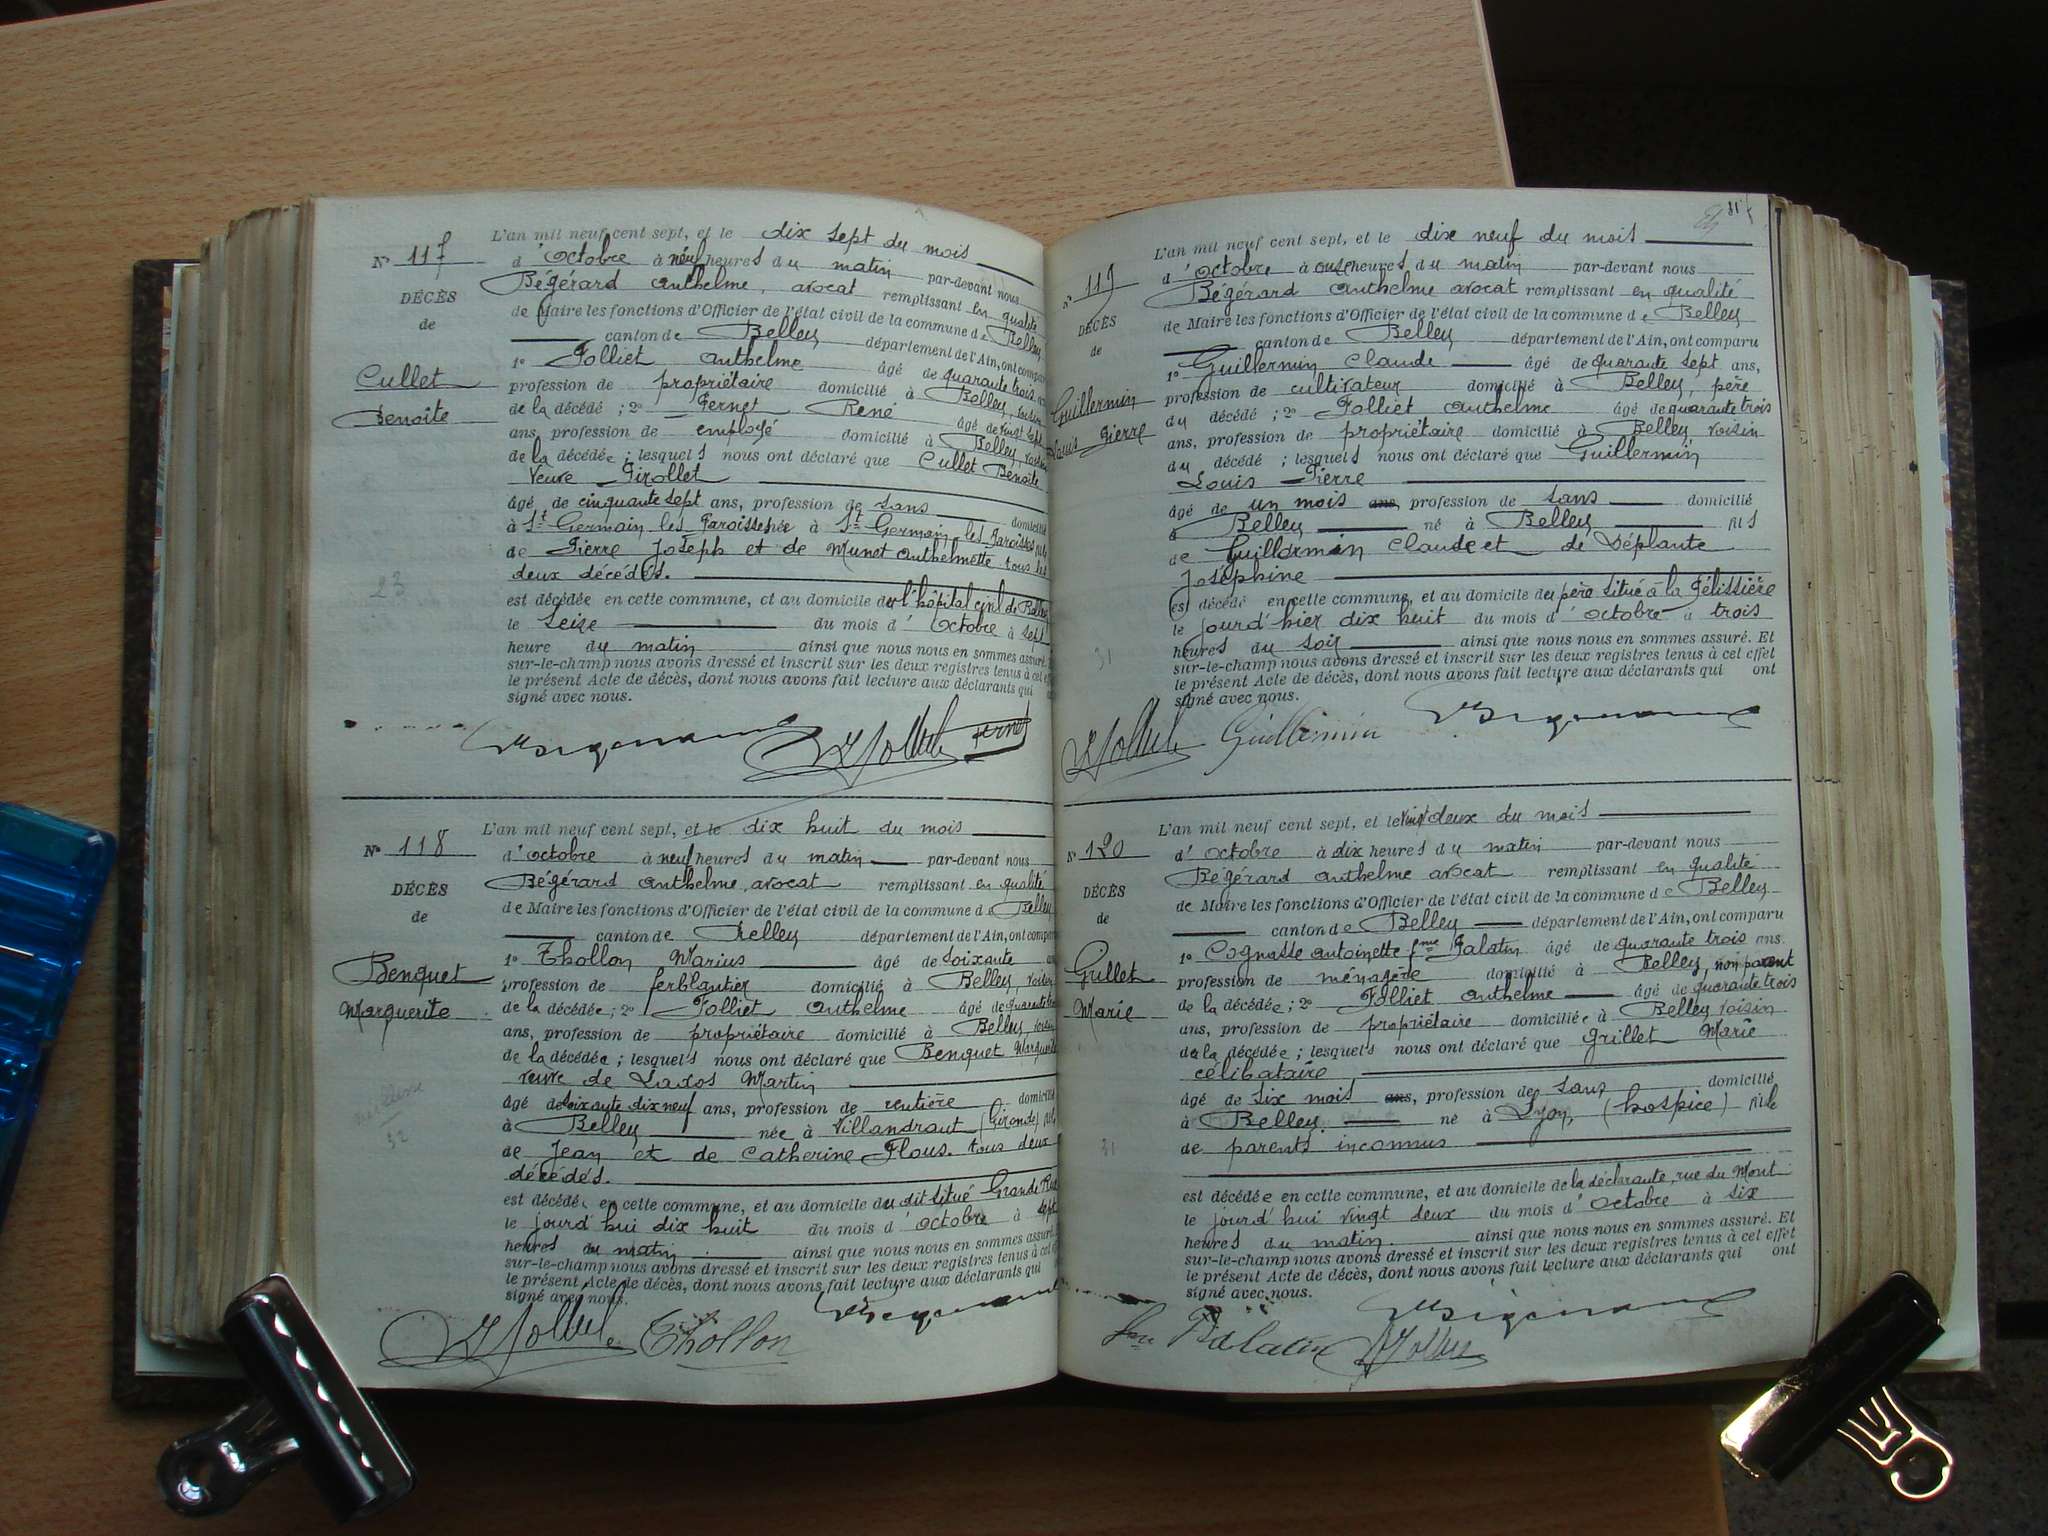 L'an mil neuf cent sept, et le dix sept du mois
N° 117
d'octobre à neuf heures du matin par-devant nous
Bégérard Anthelme, avocat remplissant en qualité
DÉCÈS
de Maire les fonctions d'Officier de l'état civil de la commune de Belley
de
canton de Belley département de l'Ain, ont comparu
1° Folliet Anthelme âgé de quarante trois
Cullet
profession de propriétaire domicilié à Belley, voisin
Benoîte
de la décédé ; 2° Fernet René âgé de vingt sept
ans, profession de employé domicilié à Belley, voisin
de la décédée ; lesquels nous ont déclaré que Cullet Benoîte
Veuve Girollet
âgé de cinquante sept ans, profession de sans domicilié
à St Germain les Paroisses née à St Germain les Paroisses fille
de Pierre Joseph et de Munet Anthelmette tous les
deux décédés.
23
est décédée en cette commune, et au domicile de l'hôpital civil de Belley
le seize du mois d'octobre à sept
heure du matin ainsi que nous nous en sommes assuré.
sur-le-champ nous avons dressé et inscrit sur les deux registres tenus à cet
le présent Acte de décès, dont nous avons fait lecture aux déclarants qui
signé avec nous.
Folliet Fernet
L'an mil neuf cent sept, et le dix huit du mois
N° 118
d'octobre à neuf heures du matin par-devant nous
Bégérard Anthelme, avocat remplissant en qualité
DÉCÈS
de Maire les fonctions d'Officier de l'état civil de la commune de Belley
de
canton de Belley département de l'Ain, ont comparu
1° Thollon Marius âgé de soixante
Benquet
profession de ferblantier domicilié à Belley, voisin
Marguerite
de la décédée ; 2° Folliet Anthelme âgé de quarante trois
ans, profession de propriétaire domicilié à Belley, voisin
de la décédée ; lesquels nous ont déclaré que Benquet Marguerite
veuve de Laxos Martin
âgé de soixante dix neuf ans, profession de rentière domicilié
à Belley née à Villandraut (Gironde) fille
32
de Jean et de Catherine Flous. tous deux
décédés.
est décédée en cette commune, et au domicile du dit situé Grande Rue
le jourd'hui dix huit du mois d'octobre à sept
heures du matin ainsi que nous nous en sommes assuré.
sur-le-champ nous avons dressé et inscrit sur les deux registres tenus à cet
le présent Acte de décès, dont nous avons fait lecture aux déclarants qui
signé avec nous.
Folliet Thollon
81
L'an mil neuf cent sept, et le dix neuf du mois
N° 119
d'octobre à onze heures du matin par-devant nous
Bégérard Anthelme avocat remplissant en qualité
DÉCÈS
de Maire les fonctions d'Officier de l'état civil de la commune de Belley
de
canton de Belley département de l'Ain, ont comparu
1° Guillermin Claude âgé de quarante sept ans,
Guillermin
profession de cultivateur domicilié à Belley, père
Louis Pierre
du décédé ; 2° Folliet Anthelme âgé de quarante trois
ans, profession de propriétaire domicilié à Belley, voisin
du décédé ; lesquels nous ont déclaré que Guillermin
Louis Pierre
âgé de un mois ans profession de sans domicilié
à Belley né à Belley fils
de Guillermin Claude et de Déplante
Joséphine
est décédé en cette commune, et au domicile du père situé à la Pélissière
le jourd'hier dix huit du mois d'octobre à trois
31
heures du soir ainsi que nous nous en sommes assuré. Et
sur-le-champ nous avons dressé et inscrit sur les deux registres tenus à cet effet
le présent Acte de décès, dont nous avons fait lecture aux déclarants qui ont
signé avec nous.
Folliet Guillermin
L'an mil neuf cent sept, et le vingt deux du mois
N° 120
d'octobre à dix heures du matin par-devant nous
Bégérard Anthelme avocat remplissant en qualité
DÉCÈS
de Maire les fonctions d'Officier de l'état civil de la commune de Belley
de
canton de Belley département de l'Ain, ont comparu
1° Cognasse Antoinette fme Palatin âgé de quarante trois ans.
Grillet
profession de ménagère domicilié à Belley, non parent
Marie
de la décédée ; 2° Folliet Anthelme âgé de quarante trois
ans, profession de propriétaire domiciliée à Belley voisin
de la décédée ; lesquels nous ont déclaré que Grillet Marie
célibataire
âgé de six mois ans, profession de sans domicilié
à Belley. né à Lyon, (hospice) fille
31
de parents inconnus
est décédée en cette commune, et au domicile de la déclarante, rue du Mont
le jourd'hui vingt deux du mois d'octobre à six
heures du matin. ainsi que nous nous en sommes assuré. Et
sur-le-champ nous avons dressé et inscrit sur les deux registres tenus à cet effet
le présent Acte de décès, dont nous avons fait lecture aux déclarants qui ont
signé avec nous.
fme Palatin Folliet